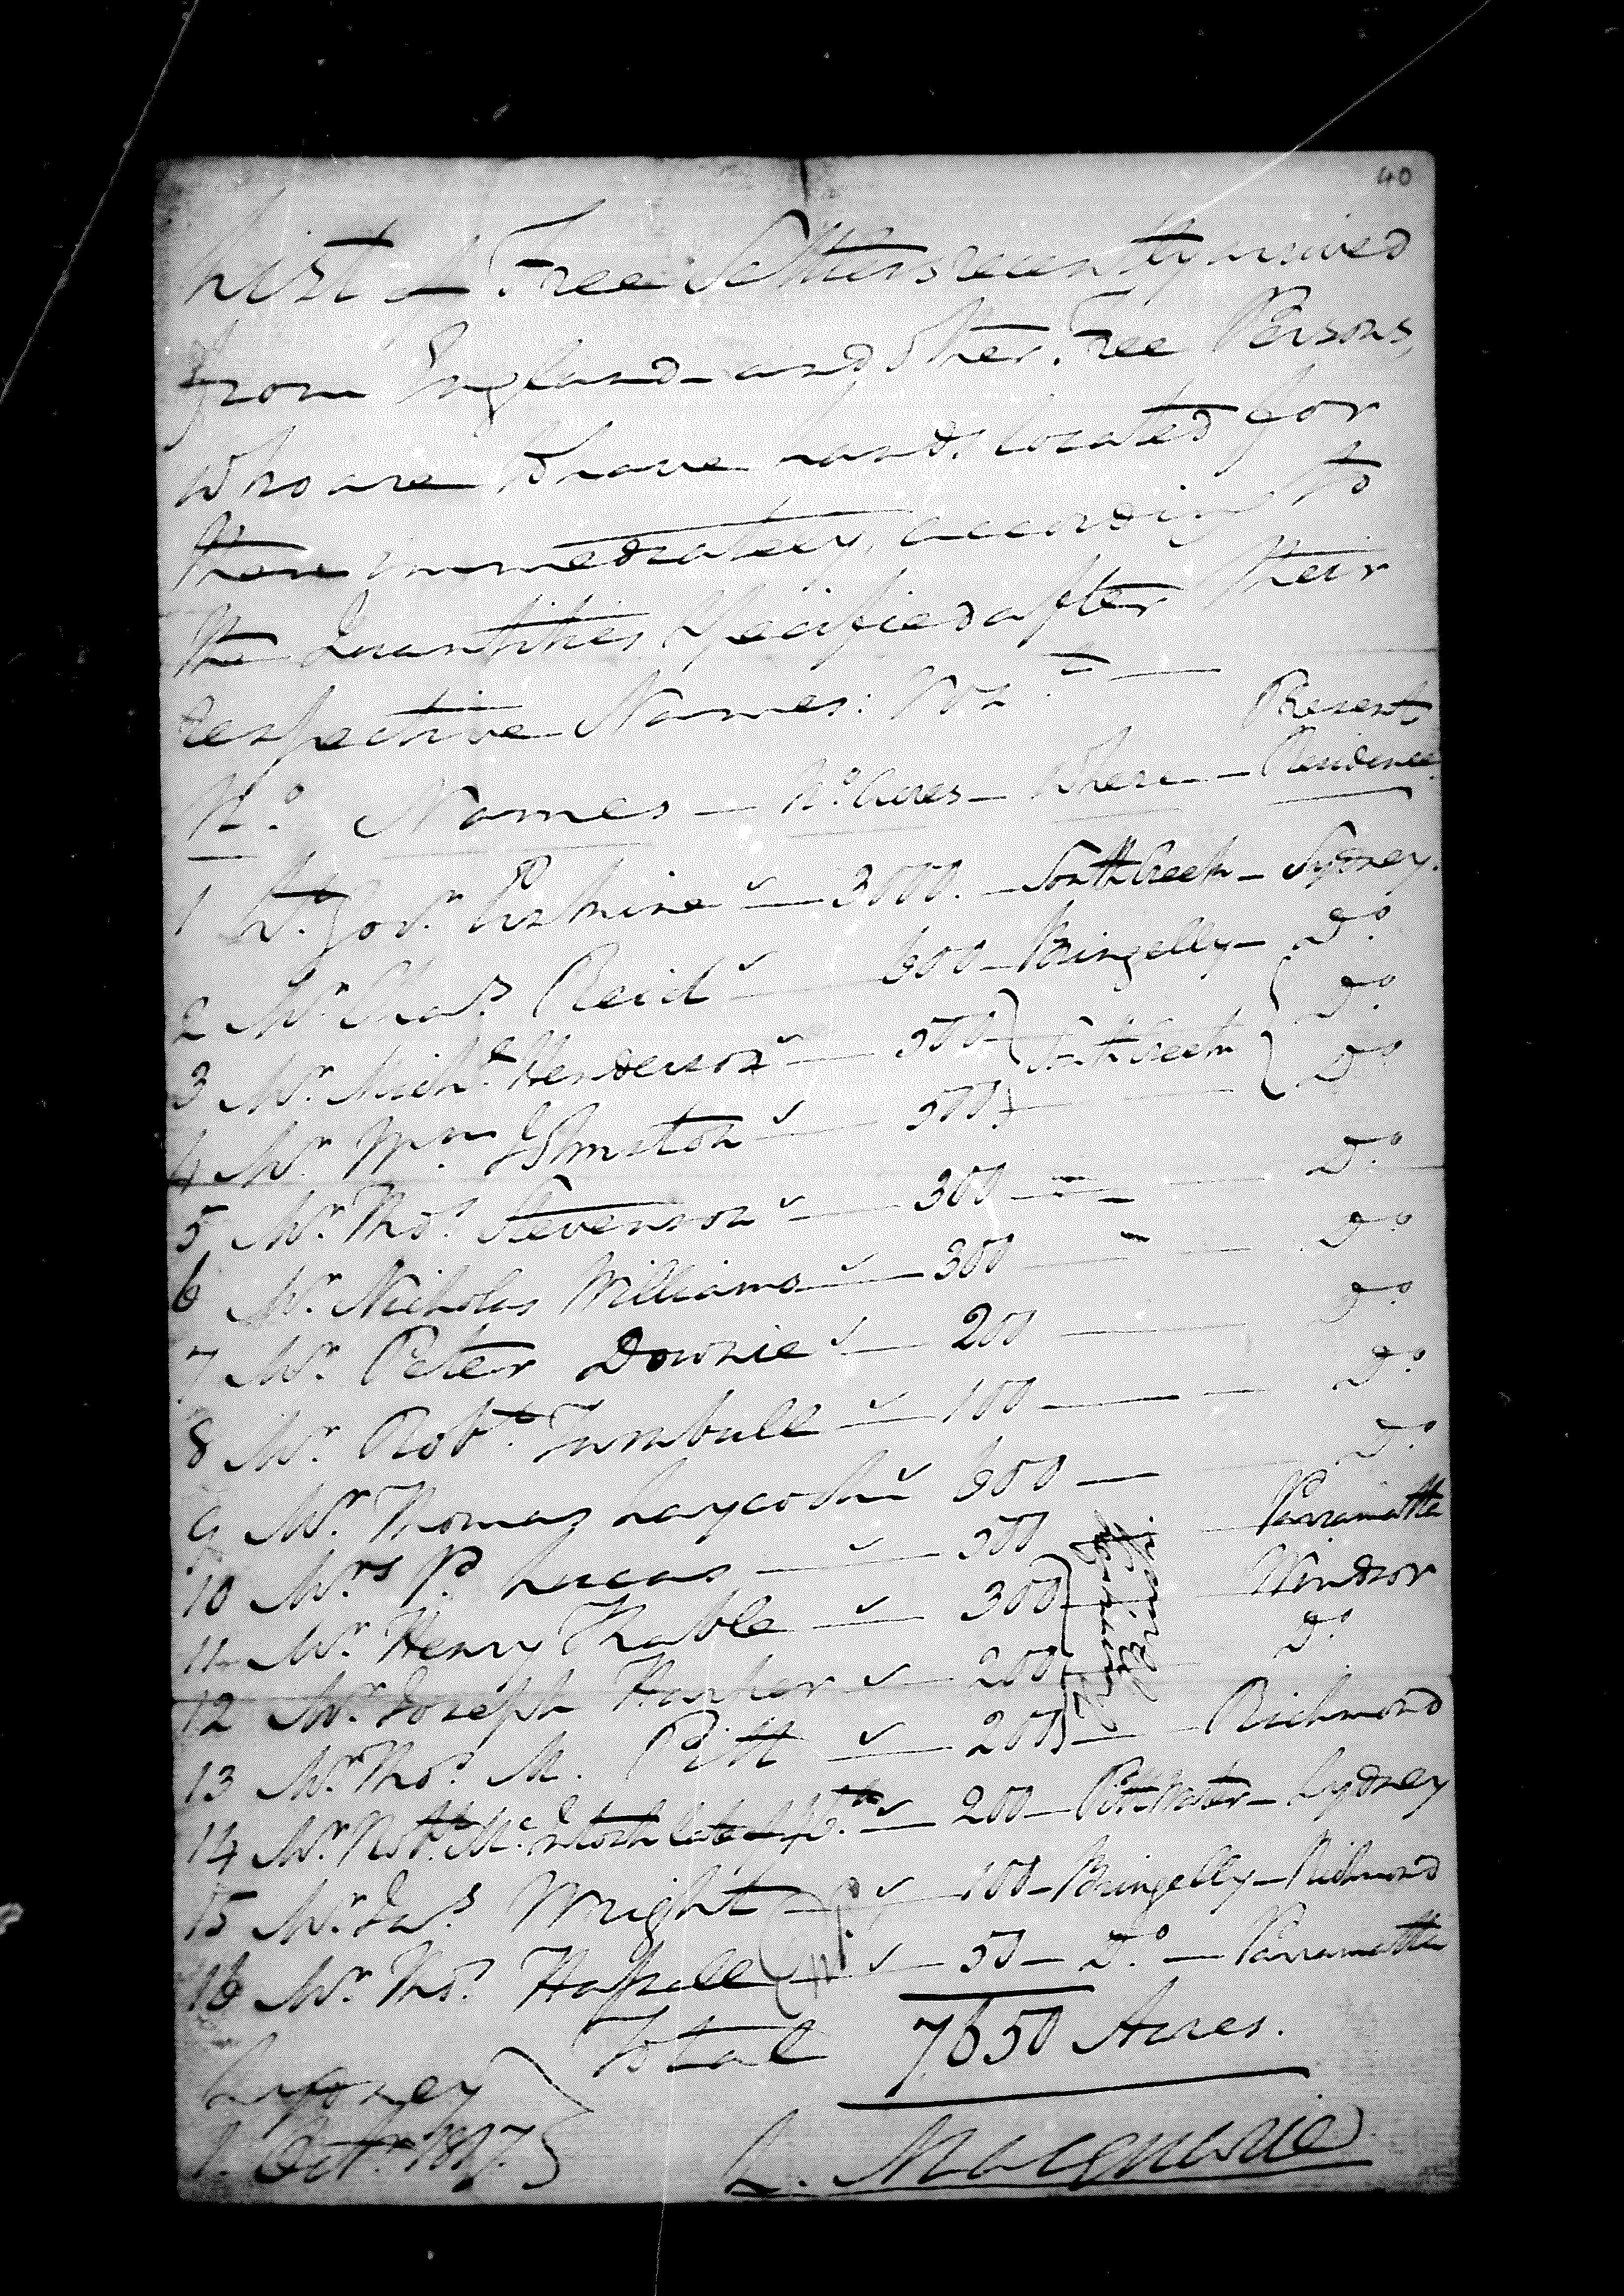 40
List of Free Settlers recently arrived
from England and other Free Persons,
who are to have Lands located for
them immediately, according to
the Quantities Specified after their
respective Names: Vizt.
No. Names — No. Acres — Where — Present Residence
1 Lt. Govr. Erskine — 3000. — South Creek — Sydney.
2 Mr. Chas. Reid — 600 — Bringelly — Do.
3 Mr. Michl. Henderson — 500 } South Creek { Do.
4 Mr. Wm. Johnston — 500 } — { Do.
5 Mr. Thos. Stevenson — 300 — Do.
6 Mr. Nicholas Williams — 300 — Do.
7 Mr. Peter Downie — 200 — Do.
8 Mr. Robt. Turnbull — 100 — Do.
9 Mr. Thomas Laycock — 600 — Do.
10 Mrs. P. Lucas — 500 — Parramatta
11 Mr. Henry Kable — 300 } — Windsor
12 Mr. Joseph Harper — 200 } — Do.
13 Mr. Thos. M. Pitt — 200 } — Richmond
14 Mr. Robt. McIntosh late — 200 — Pitt Water — Sydney
15 Mr. Jas. Wright — 100 — Bringelly — Richmond
16 Mr. Thos. Hassall — 50 — Do. — Parramatta
Total 7,650 Acres.
Sydney }
1. Octr. 1817. }
L. Macquarie